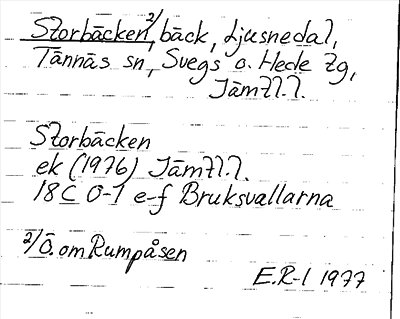 Storbäcken²⁾, bäck, Ljusnedal,
Tännäs sn, Svegs o. Hede tg,
Jämtl. l.
Storbäcken
ek (1976) Jämtl. l.
18C 0-1 e-f Bruksvallarna
²⁾ Ö. om Rumpåsen
E.R-l 1977